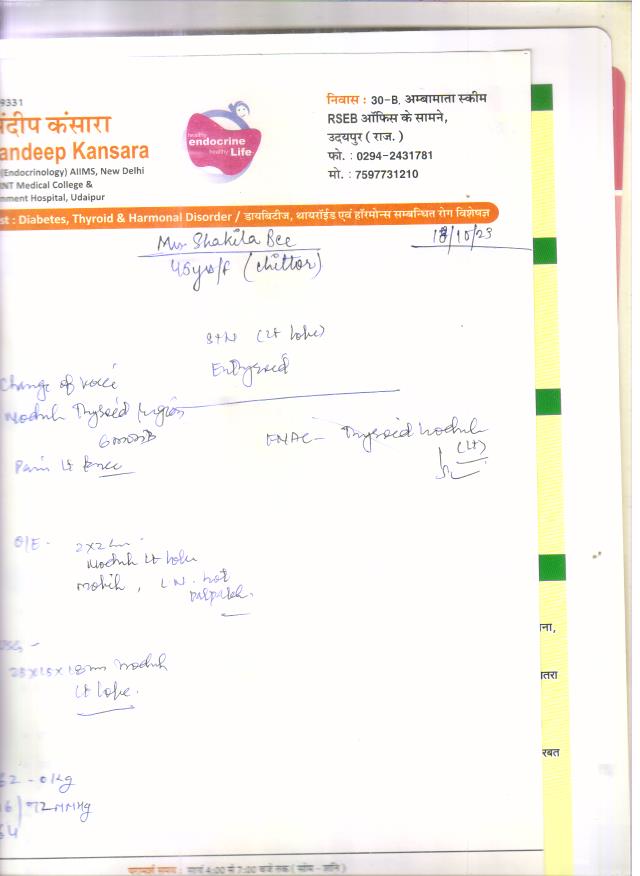 9331
ंदीप कंसारा
andeep Kansara
(Endocrinology) AIIMS, New Delhi
NT Medical College &
nment Hospital, Udaipur
healthy
endocrine
healthy Life
निवास : 30-B, अम्बामाता स्कीम
RSEB ऑफिस के सामने,
उदयपुर ( राज. )
फो. : 0294-2431781
मो. : 7597731210
st : Diabetes, Thyroid & Harmonal Disorder / डायबिटीज, थायरॉईड एवं हॉरमोन्स सम्बन्धित रोग विशेषज्ञ
Mrs Shakila Bee
/10/23
45yrs/f (Chittor)
STN (Lt lobe)
Euthyroid
Change of voice
Nodule Thyroid region
6 months
FNAC - Thyroid nodule
(Lt)
Pain Lt knee
O/E - 2x2 cm
Nodule Lt lobe
mobile, LN not
palpable.
USG -
25x15x18mm nodule
Lt lobe.
62-0kg
/72mmHg
64
ना,
तरा
रबत
परामर्श समय : सायं 4:00 से 7:00 बजे तक ( सोम - शनि )